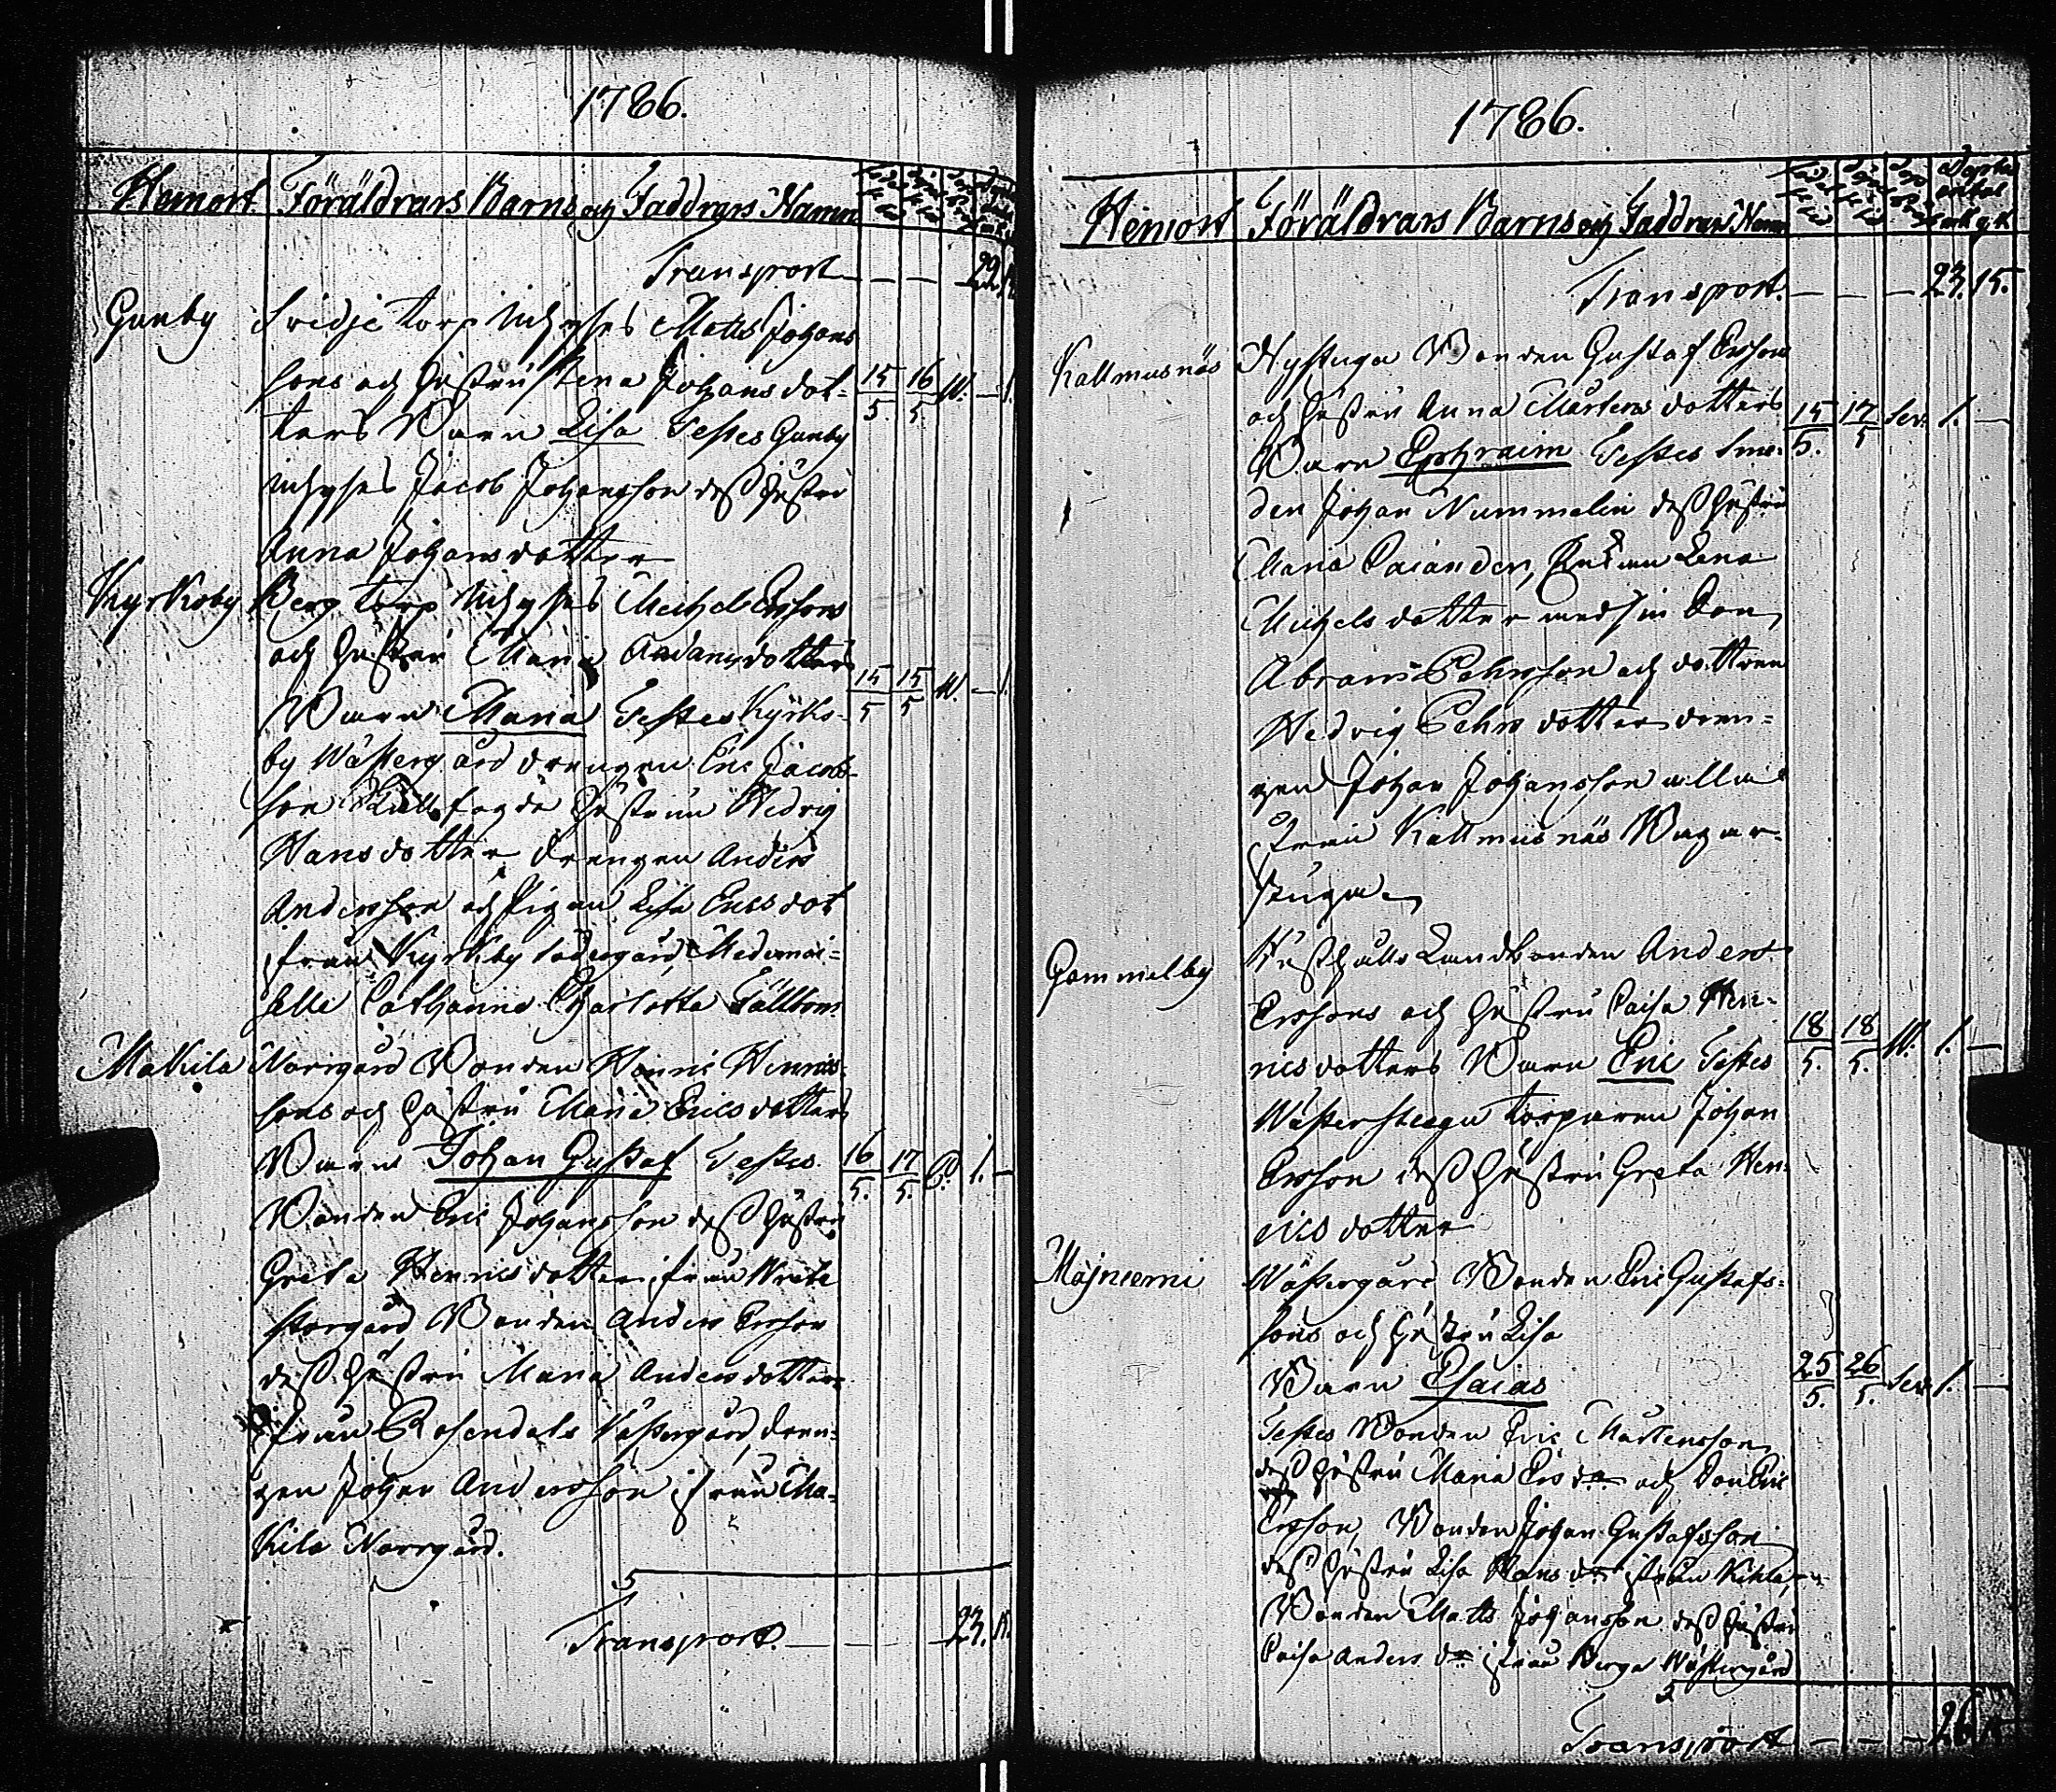 1786.
Hemort. Föräldrars Barns och Faddrars Namn
Transport — — — 22.
Gunby Svidje torp Inhyses Matts Johans
sons och Hustru Stina Johans dot-
ters Barn Lisa Testes Gunby 15/5. 16/5 W. — 1.
inhyses Jacob Johansson dess Hustru
Anna Johansdotter
Kyrkoby Berg torp Inhyses Michel Ersons
och Hustru Maria Adamsdotters
Barn Maria Testes Kyrko- 15/5 15/5 W. — 1.
by Wästergård drengen Eric Jacobs-
son Hustrun Hedvig
Hansdotter Drengen Anders
Andersson och Pigan Lisa Ericsdot
ifrån Kyrkby Södergård Mademoi-
selle Catharina Charlotta
Makila Norrgård Bonden Henric Henrics-
sons och Hustru Maria Ericsdotters
Barn Johan Gustaf Testes 16/5. 17/5. P. 1. —
Bonden Eric Johansson dess Hustru
Greta Henricsdotter ifrån Wreta
Storgård Bonden Anders Ersson
dess Hustru Maria Andersdotter
ifrån Rosendals Wästergård dren-
gen Johan Andersson ifrån Ma-
kila Norrgård.
5
Transport. — — — 23. 15.
1786.
Hemort Föräldrars Barns och Faddrars Namn
Transport. — — — 23. 15.
Kallmusnäs Nystuga Bonden Gustaf Ersson
och Hustru Anna Mårtensdotters
Barn Ephraim Testes Sme- 15/5. 17/5 Ser. 1. —
den Johan Nummelin dess Hustru
Maria Caiander, Enkan Lena
Michelsdotter med sin Son
Abram Pehrsson och dottren
Hedvig Pehrsdotter dren-
gen Johan Johansson alla
ifrån Kallmusnäs Bagar-
stuga
Gammelby Landbonden Anders
Erssons och Hustru Caisa Hen-
ricsdotters Barn Eric Testes 18/5. 18/5. W. 1. —
Wästerstuga torparen Johan
Ersson dess Hustru Greta Hen-
ricsdotter
Majniemi Wästergård Bonden Eric Gustafs-
sons och Hustru Lisa
Barn Esaias 25/5. 26/5. Ser. 1. —
Testes Bonden Eric Mårtensson
dess Hustru Maria Ers dr och Son Eric
Ersson, Bonden Johan Gustafsson
dess Hustru Lisa Hans dr ifrån Kihla,
Bonden Matts Johansson dess Hustru
Caisa Anders dr ifrån Berga Wästergård
5
Transport — — — 26. 15